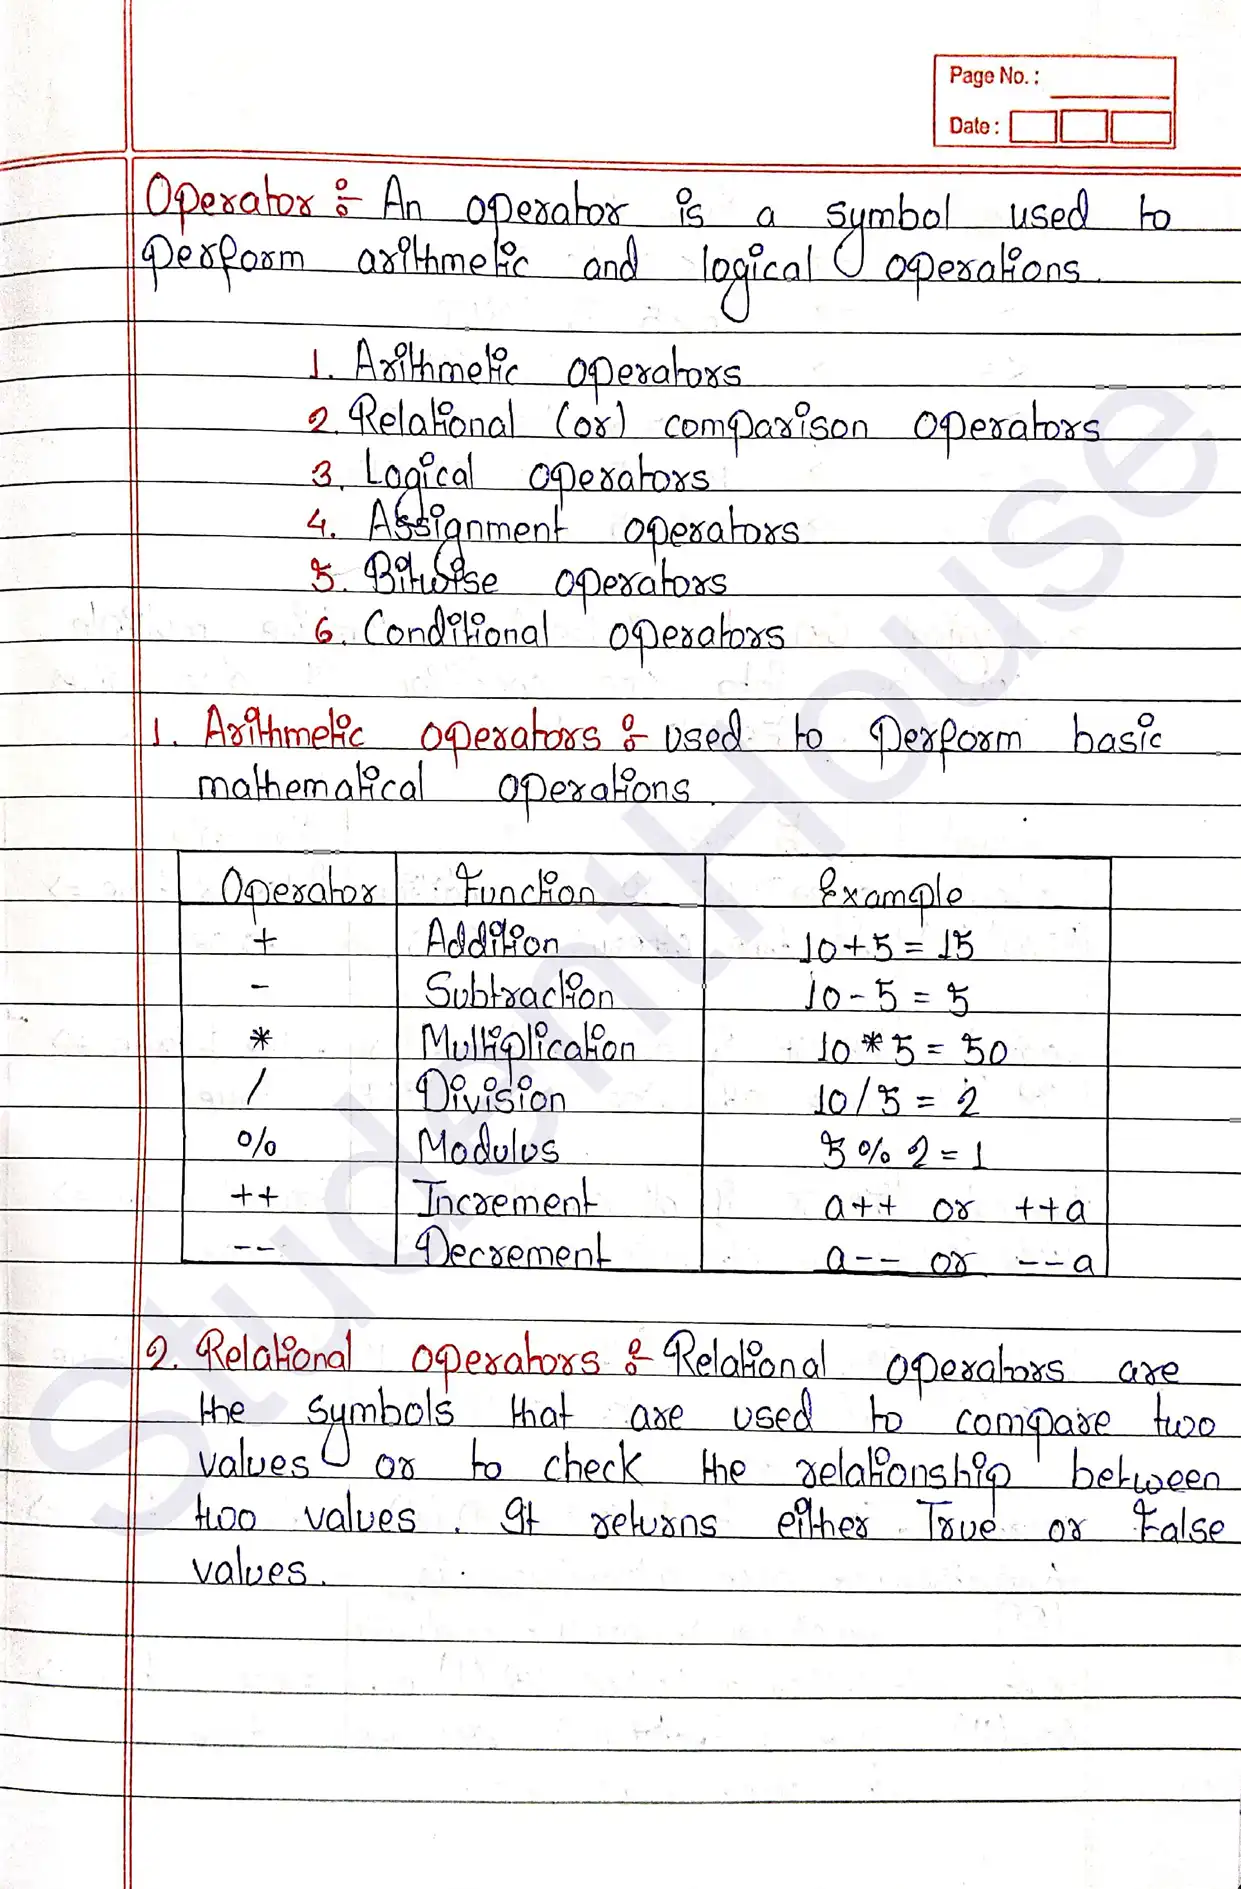 Page No. :
Date :
Operator :- An operator is a symbol used to
perform arithmetic and logical operations.
1. Arithmetic operators
2. Relational (or) comparison operators
3. Logical operators
4. Assignment operators
5. Bitwise operators
6. Conditional operators
1. Arithmetic operators :- used to perform basic
mathematical operations.
Operator Function Example
+ Addition 10+5 = 15
- Subtraction 10-5 = 5
* Multiplication 10*5 = 50
/ Division 10/5 = 2
% Modulus 5%2=1
++ Increment a++ or ++a
-- Decrement a-- or --a
2. Relational operators :- Relational operators are
the symbols that are used to compare two
values or to check the relationship between
two values. It returns either True or False
values.
StudentHouse